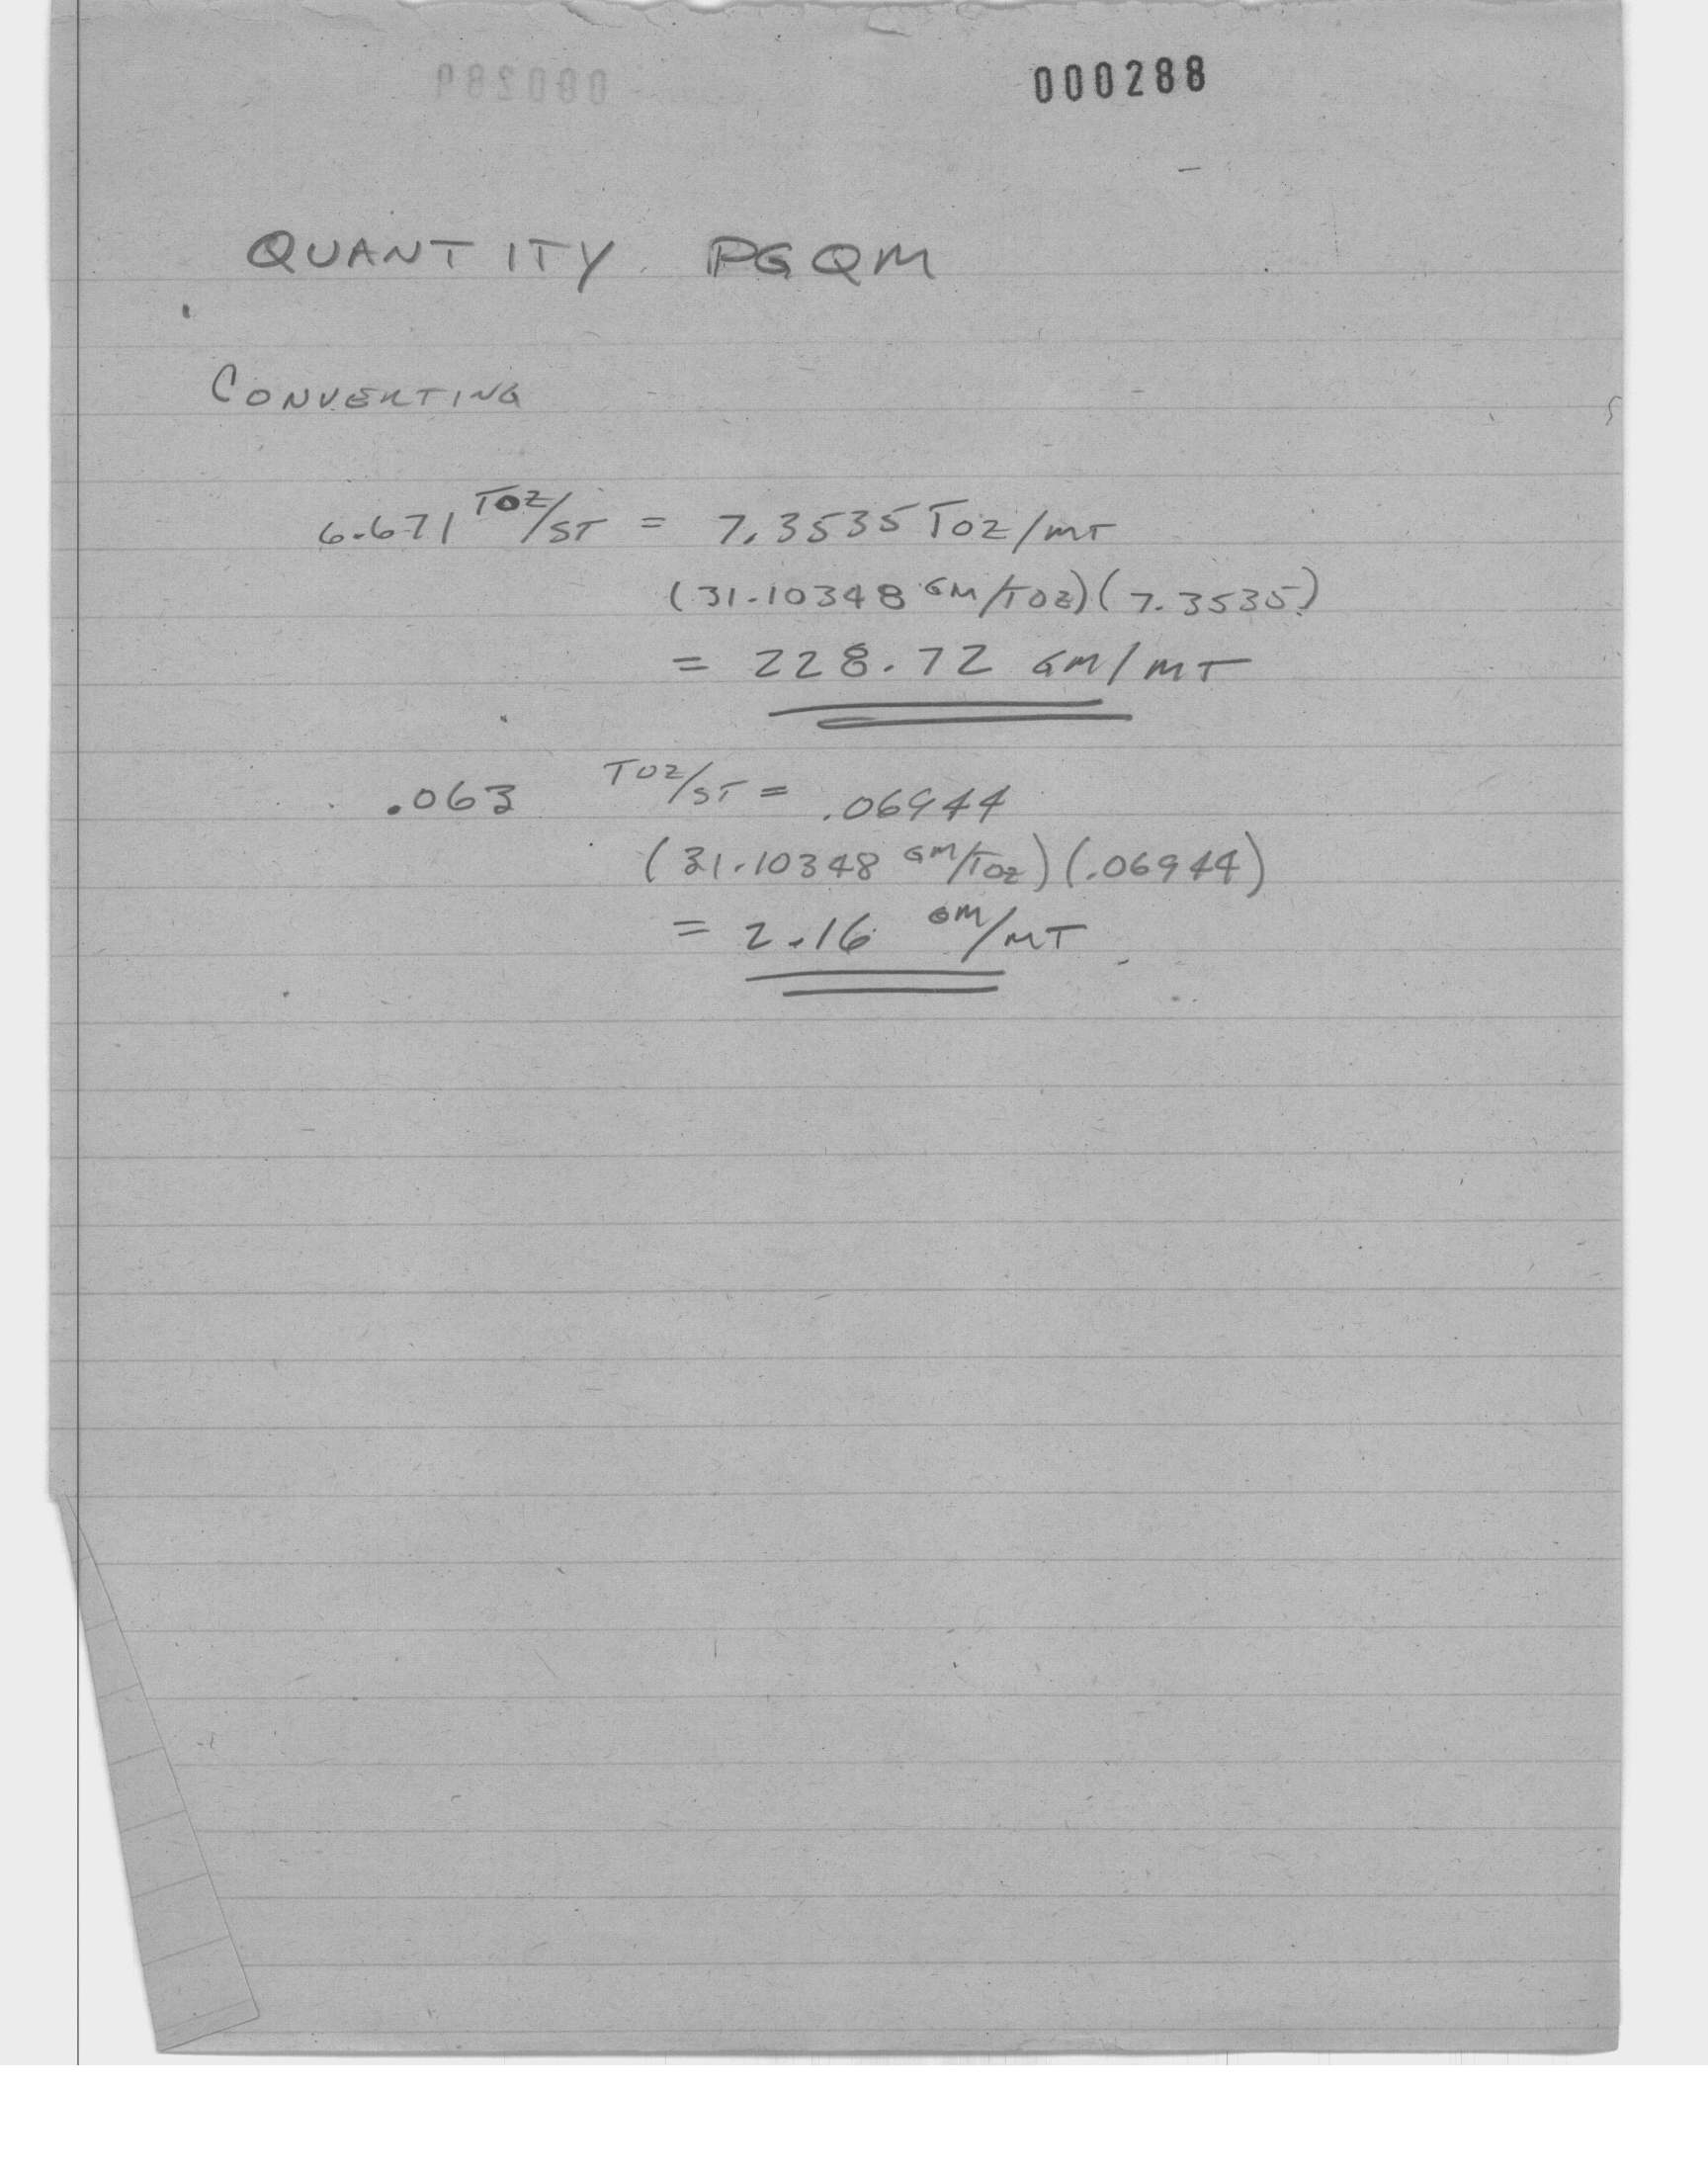 000288
QUANTITY PGQM
CONVERTING
6.671 TOZ/ST = 7.3535 TOZ/MT
(31.10348 GM/TOZ)(7.3535)
= 228.72 GM/MT
.063 TOZ/ST = .06944
(31.10348 GM/TOZ)(.06944)
= 2.16 GM/MT